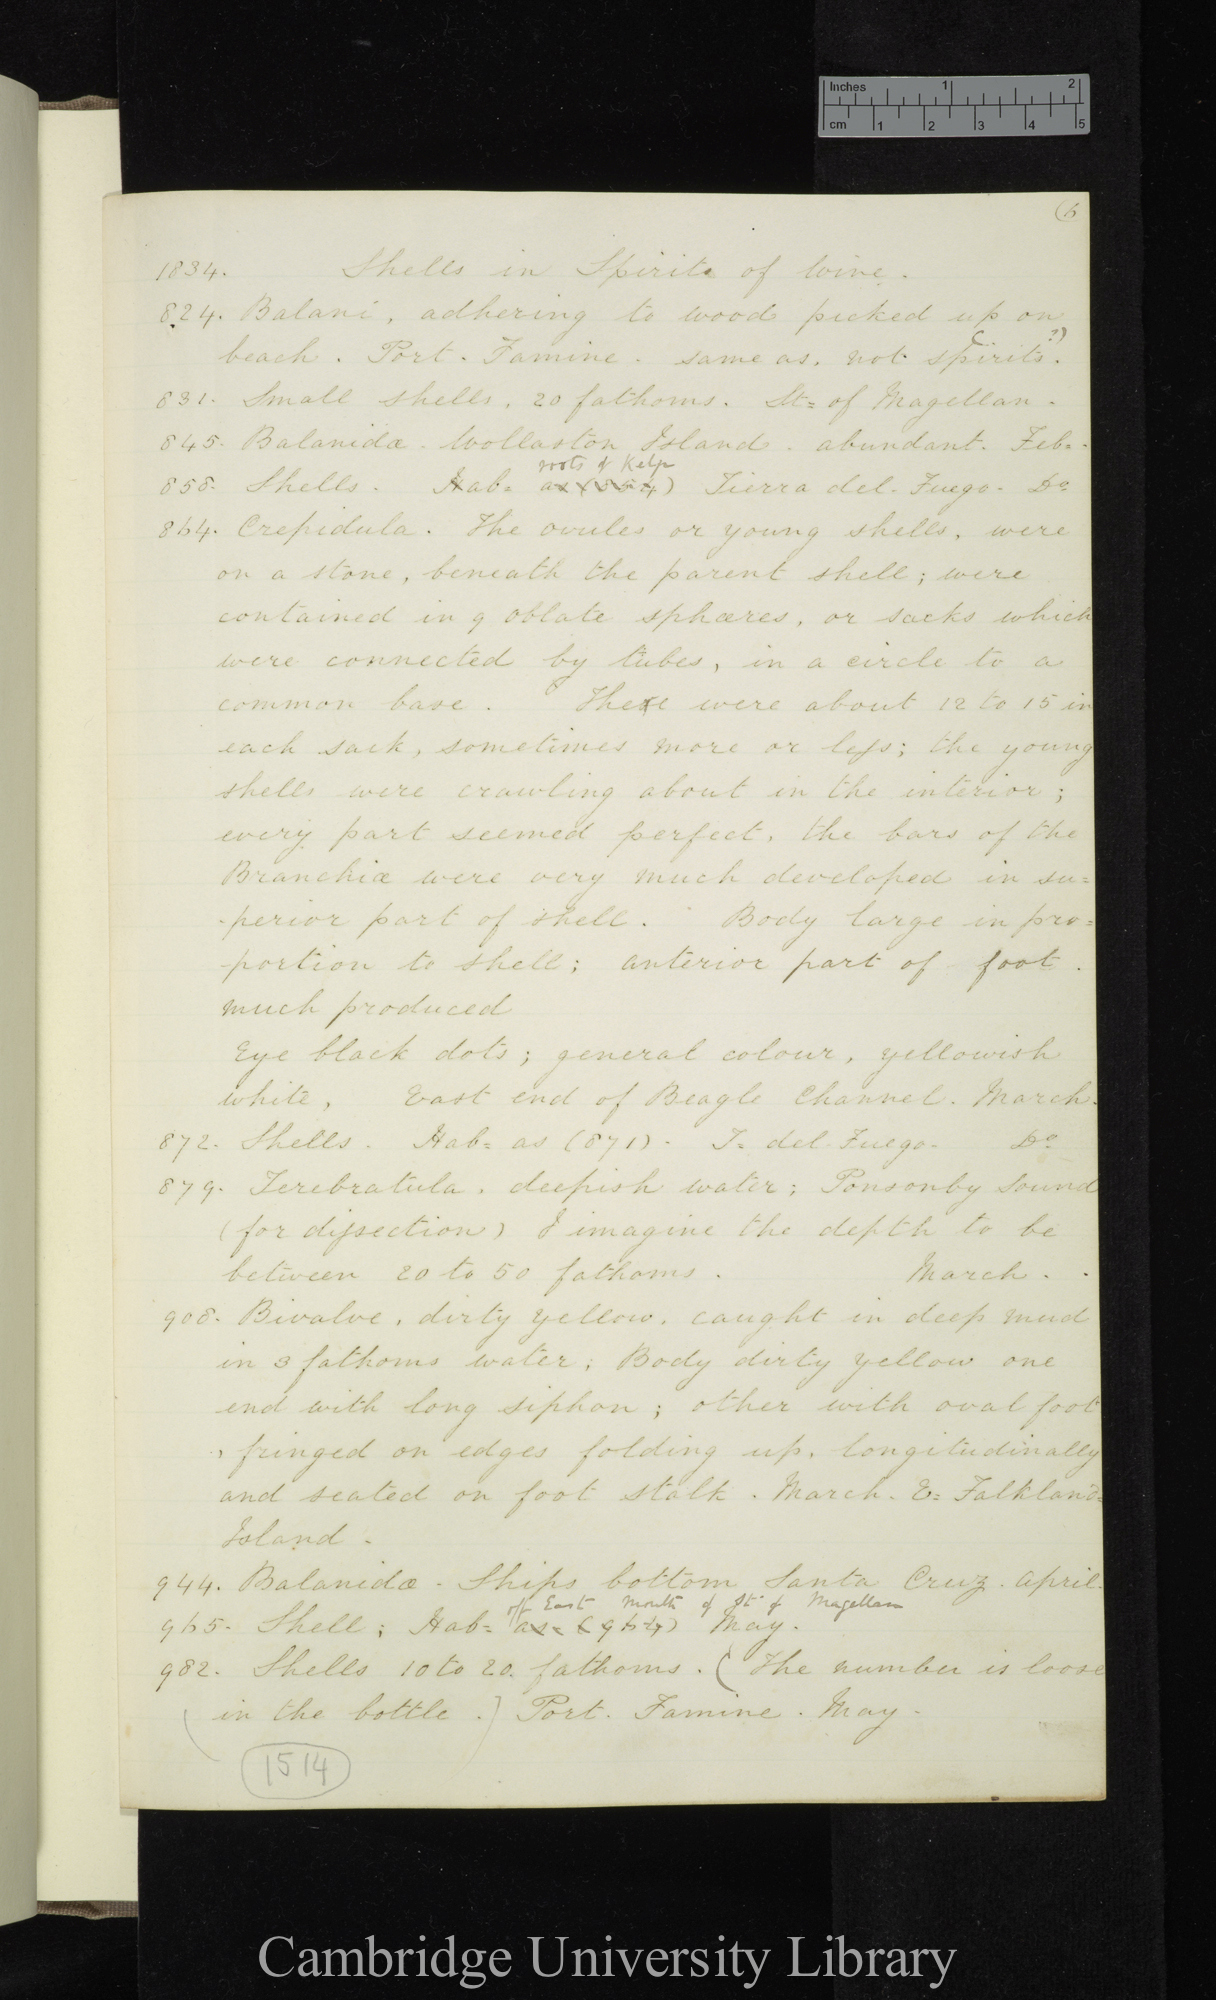 Inches 1 2
cm 1 2 3 4 5
(6
1834. Shells in Spirits of Wine.
824. Balani, adhering to wood picked up on
beach. Port. Famine. same as. not spirits. (?)
831. Small shells, 20 fathoms. St= of Magellan.
845. Balanidæ. Wollaston Island. abundant. Feb=.
roots of Kelp
858. Shells. Hab= as (854) Tierra del. Fuego. Do
864. Crepidula. The ovules or young shells, were
on a stone, beneath the parent shell; were
contained in 9 oblate sphæres, or sacks which
were connected by tubes, in a circle to a
common base. There were about 12 to 15 in
each sack, sometimes more or less; the young
shells were crawling about in the interior;
every part seemed perfect, the bars of the
Branchiæ were very much developed in su=
-perior part of shell. Body large in pro=
-portion to shell; anterior part of foot.
much produced
Eye black dots; general colour, yellowish
white, East end of Beagle Channel. March.
872. Shells. Hab= as (871). T= del. Fuego. Do
879. Terebratula, deepish water; Ponsonby Sound
(for dissection) I imagine the depth to be
between 20 to 50 fathoms. March.
908. Bivalve, dirty yellow, caught in deep mud
in 3 fathoms water; Body dirty yellow one
end with long siphon; other with oval foot
, fringed on edges folding up, longitudinally
and seated on foot stalk. March. E= Falkland=
Island.
944. Balanidæ. Ships bottom Santa Cruz. April.
off East Mouth of St. of Magellan
965. Shell; Hab= as= (964) May.
982. Shells 10 to 20. fathoms. (The number is loose
in the bottle.) Port. Famine. May.
1514
Cambridge University Library